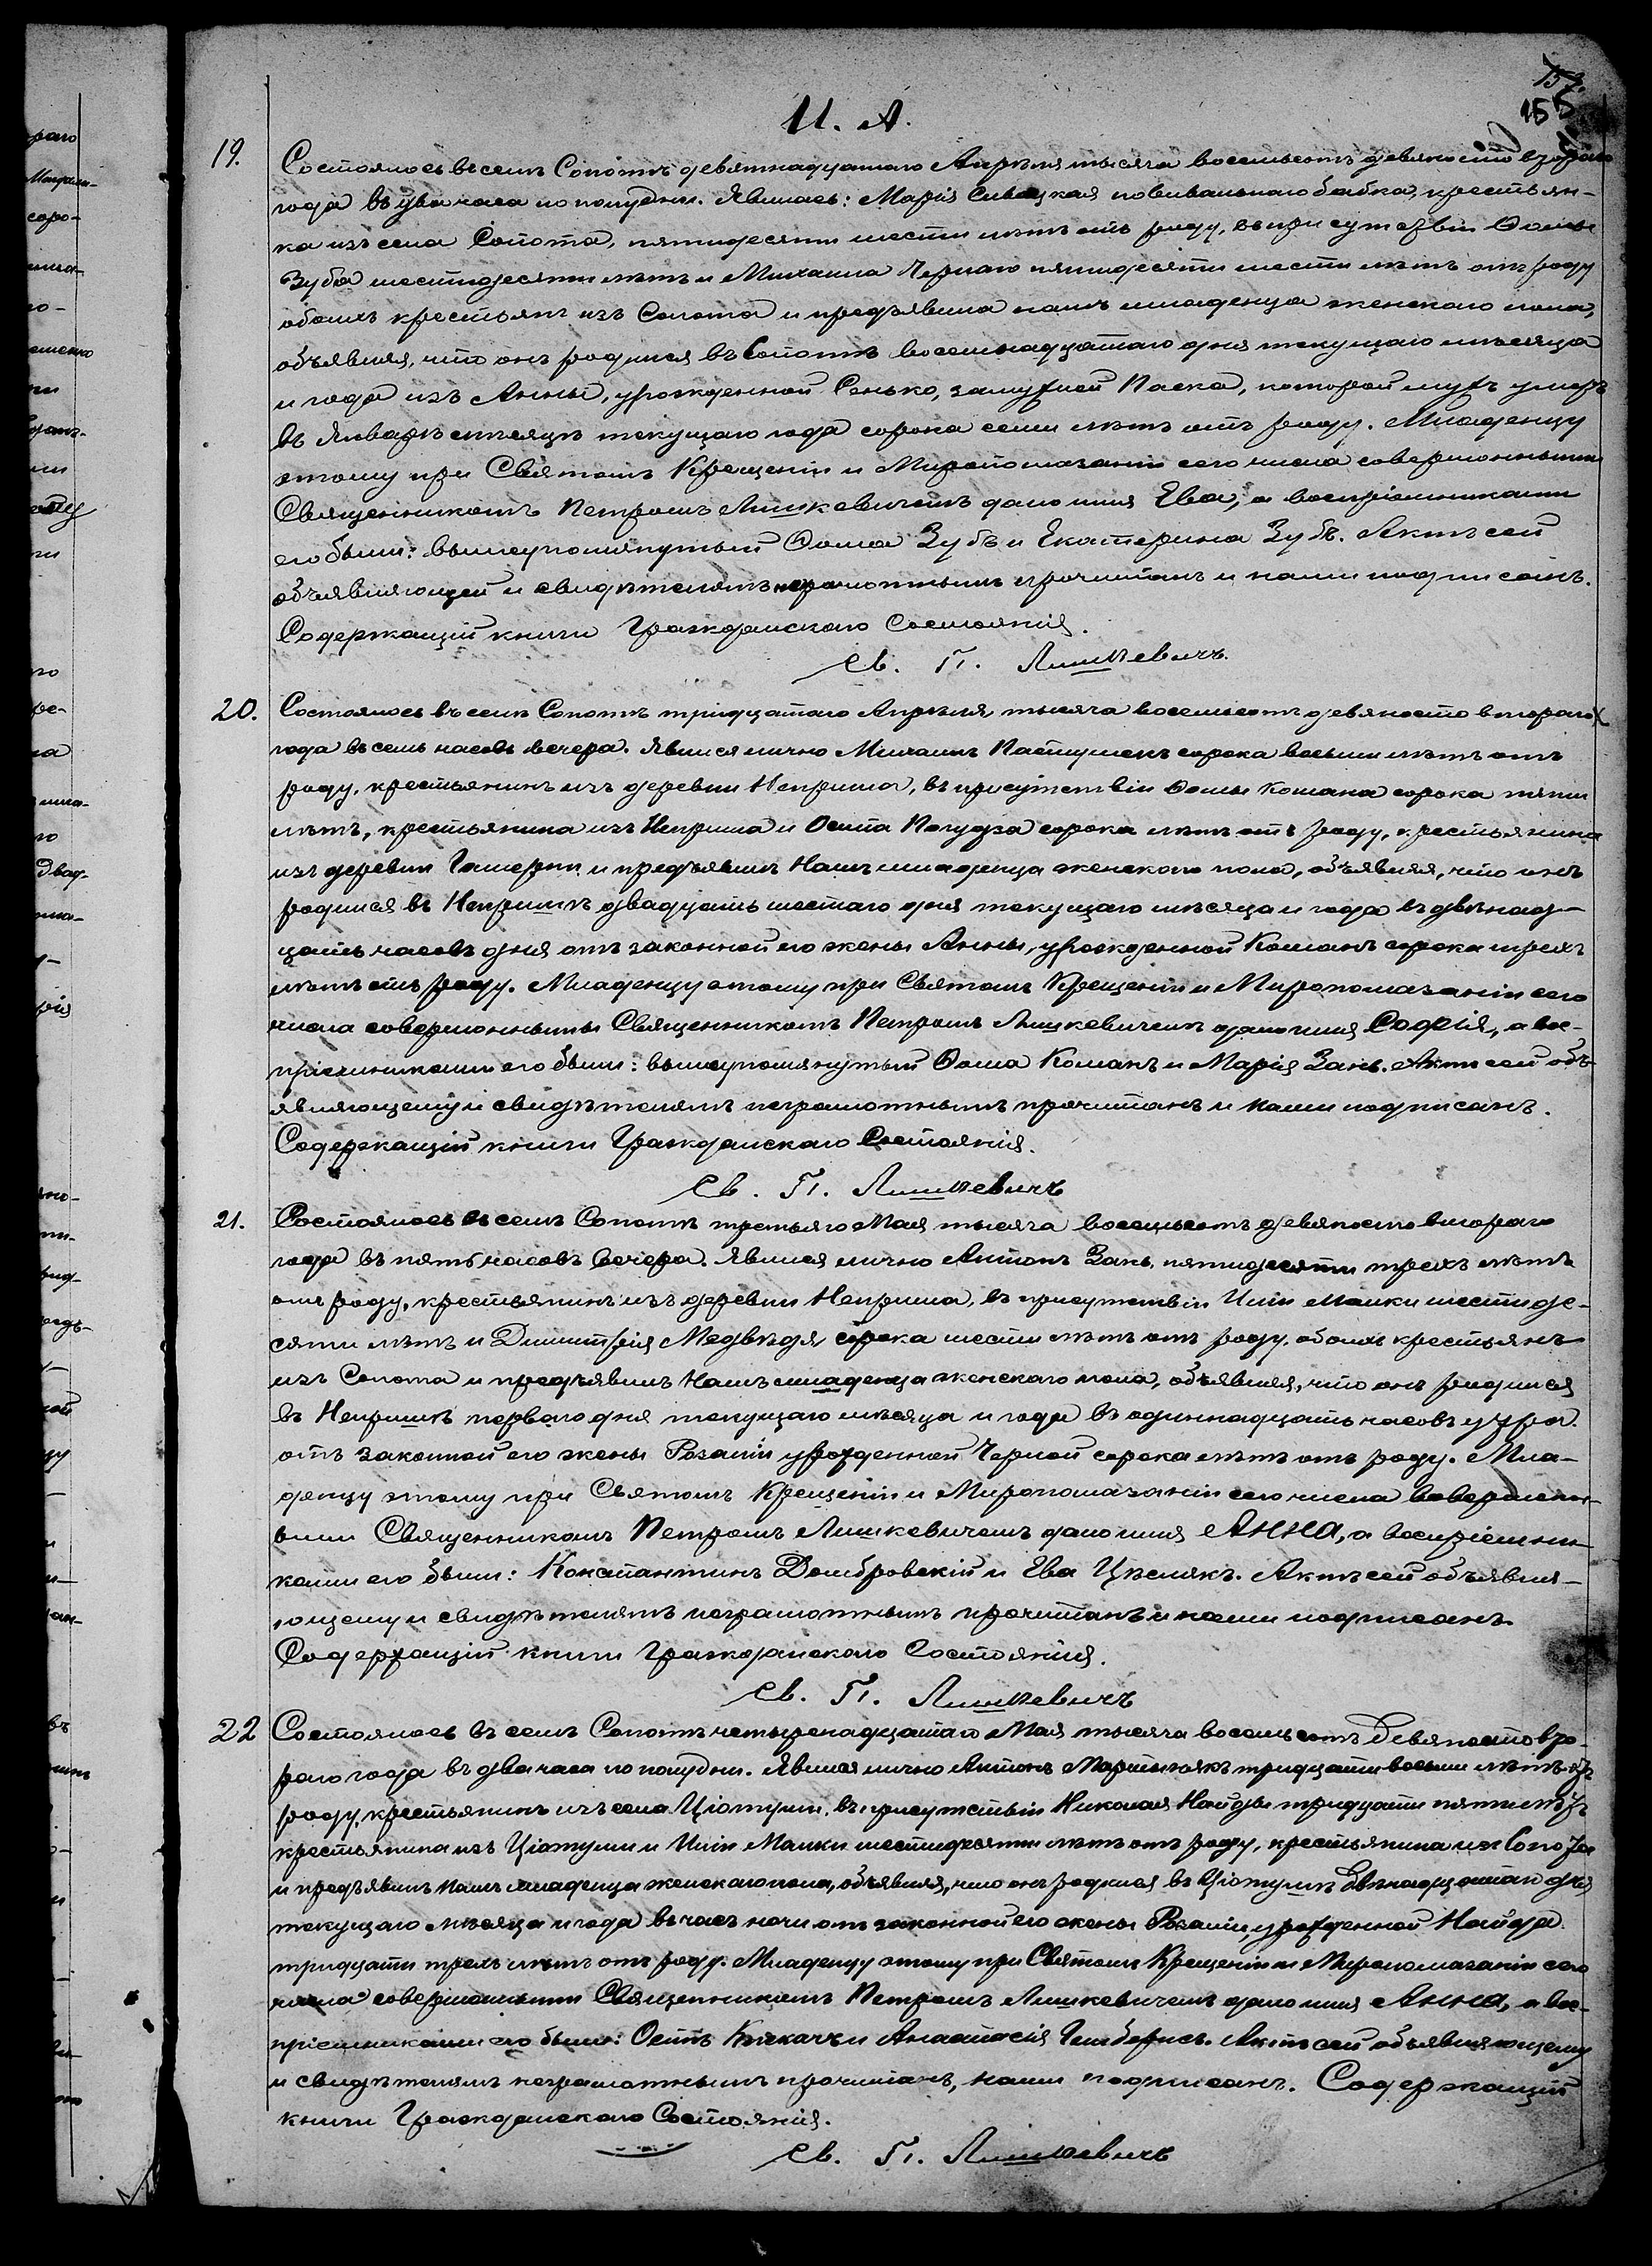 155
И. А.
19.
Состоялось въ семъ Сопотѣ девятнадцатаго Апрѣля тысяча восемьсотъ девяносто второго
года въ два часа по полудни. Явилась: Марія повивальная бабка, крестьян-
ка изъ села Сопота, пятидесяти шести лѣтъ отъ роду, въ присутствіи Ѳомы
Зуба шестидесяти лѣтъ и Михаила Чернаго пятидесяти шести лѣтъ отъ роду
обоихъ крестьянъ изъ Сопота и предъявила намъ младенца женскаго пола,
объявляя, что онъ родился въ Сопотѣ восемнадцатаго дня текущаго мѣсяца
и года изъ Анны, урожденной Сенько, замужней Паска, которой мужъ умеръ
въ Январѣ мѣсяцѣ текущаго года сорока семи лѣтъ отъ роду. Младенцу
этому при Святомъ Крещеніи и Миропомазаніи сего числа совершонными
Священникомъ Петромъ Лишкевичемъ дано имя Ева, а воспріемниками
его были: вышеупомянутый Ѳома Зубъ и Екатерина Зубъ. Актъ сей
объявляющей и свидѣтелямъ неграмотнымъ прочитанъ и нами подписанъ.
Содержащій книги Гражданскаго Состоянія.
Св. П. Лишкевичъ.
20.
Состоялось въ семъ Сопотѣ тридцатаго Апрѣля, тысяча восемьсотъ девяносто второго
года въ семь часовъ вечера. Явился лично Михаилъ Пастушекъ сорока восьми лѣтъ отъ
роду, крестьянинъ изъ деревни Неприша, въ присутствіи Ѳомы Комана сорока пяти
лѣтъ, крестьянина изъ Неприша и Осипа Полудза сорока лѣтъ отъ роду, крестьянина
изъ деревни и предъявилъ Намъ младенца женскаго пола, объявляя, что онъ
родился въ Непришѣ двадцать шестаго дня текущаго мѣсяца и года въ двѣнад-
цать часовъ дня отъ законной его жены Анны, урожденной Команъ сорока трехъ
лѣтъ отъ роду. Младенцу этому при Святомъ Крещеніи и Миропомазаніи сего
числа совершонными Священникомъ Петромъ Лишкевичемъ дано имя Софія, а вос-
пріемниками его были: вышеупомянутый Ѳома Команъ и Марія Зань. Актъ сей объ-
являющему и свидѣтелямъ неграмотнымъ прочитанъ и нами подписанъ.
Содержащій книги Гражданскаго Состоянія.
Св. П. Лишкевичъ
21.
Состоялось въ семъ Сопотѣ третьяго Мая тысяча восемьсотъ девяносто второго
года въ пять часовъ вечера. Явился лично Антонъ Зань, пятидесяти трехъ лѣтъ
отъ роду, крестьянинъ изъ деревни Неприша, въ присутствіи Иліи Малки шестиде-
сяти лѣтъ и Димитрія Медвѣдя, сорока шести лѣтъ отъ роду, обоихъ крестьянъ
изъ Сопота и предъявилъ Намъ младенца женскаго пола, объявляя, что онъ родился
въ Непришѣ перваго дня текущаго мѣсяца и года въ одиннадцать часовъ утра
отъ законной его жены Розаліи урожденной Черной сорока лѣтъ отъ роду. Мла-
денцу этому при Святомъ Крещеніи и Миропомазаніи сего числа совершонн-
ыми Священникомъ Петромъ Лишкевичемъ дано имя Анна, а воспріемни-
ками его были: Константинъ Домбровскій и Ева Цѣслякъ. Актъ сей объявля-
ющему и свидѣтелямъ неграмотнымъ прочитанъ и нами подписанъ.
Содержащій книги Гражданскаго Состоянія.
Св. П. Лишкевичъ
22
Состоялось въ семъ Сопотѣ четырнадцатаго Мая тысяча восемьсотъ девяносто вто-
рого года въ два часа по полудни. Явился лично Антонъ Мартынюкъ тридцати восьми лѣтъ отъ
роду, крестьянинъ изъ села Ціотуши, въ присутствіи Николая Найды тридцати пяти лѣтъ
крестьянина изъ Ціотуши и Иліи Малки шестидесяти лѣтъ отъ роду, крестьянина изъ Сопота
и предъявилъ Намъ младенца женскаго пола, объявляя, что онъ родился въ Ціотушѣ двѣнадцатаго дня
текущаго мѣсяца и года въ часъ ночи отъ законной его жены Розаліи, урожденной Найда
тридцати трехъ лѣтъ отъ роду. Младенцу этому при Святомъ Крещеніи и Миропомазаніи сего
числа совершонными Священникомъ Петромъ Лишкевичемъ дано имя Анна, а вос-
пріемниками его были: Осипъ и Анастасія. Актъ сей объявляющему
и свидѣтелямъ неграмотнымъ прочитанъ, нами подписанъ. Содержащій
книги Гражданскаго Состоянія.
Св. П. Лишкевичъ